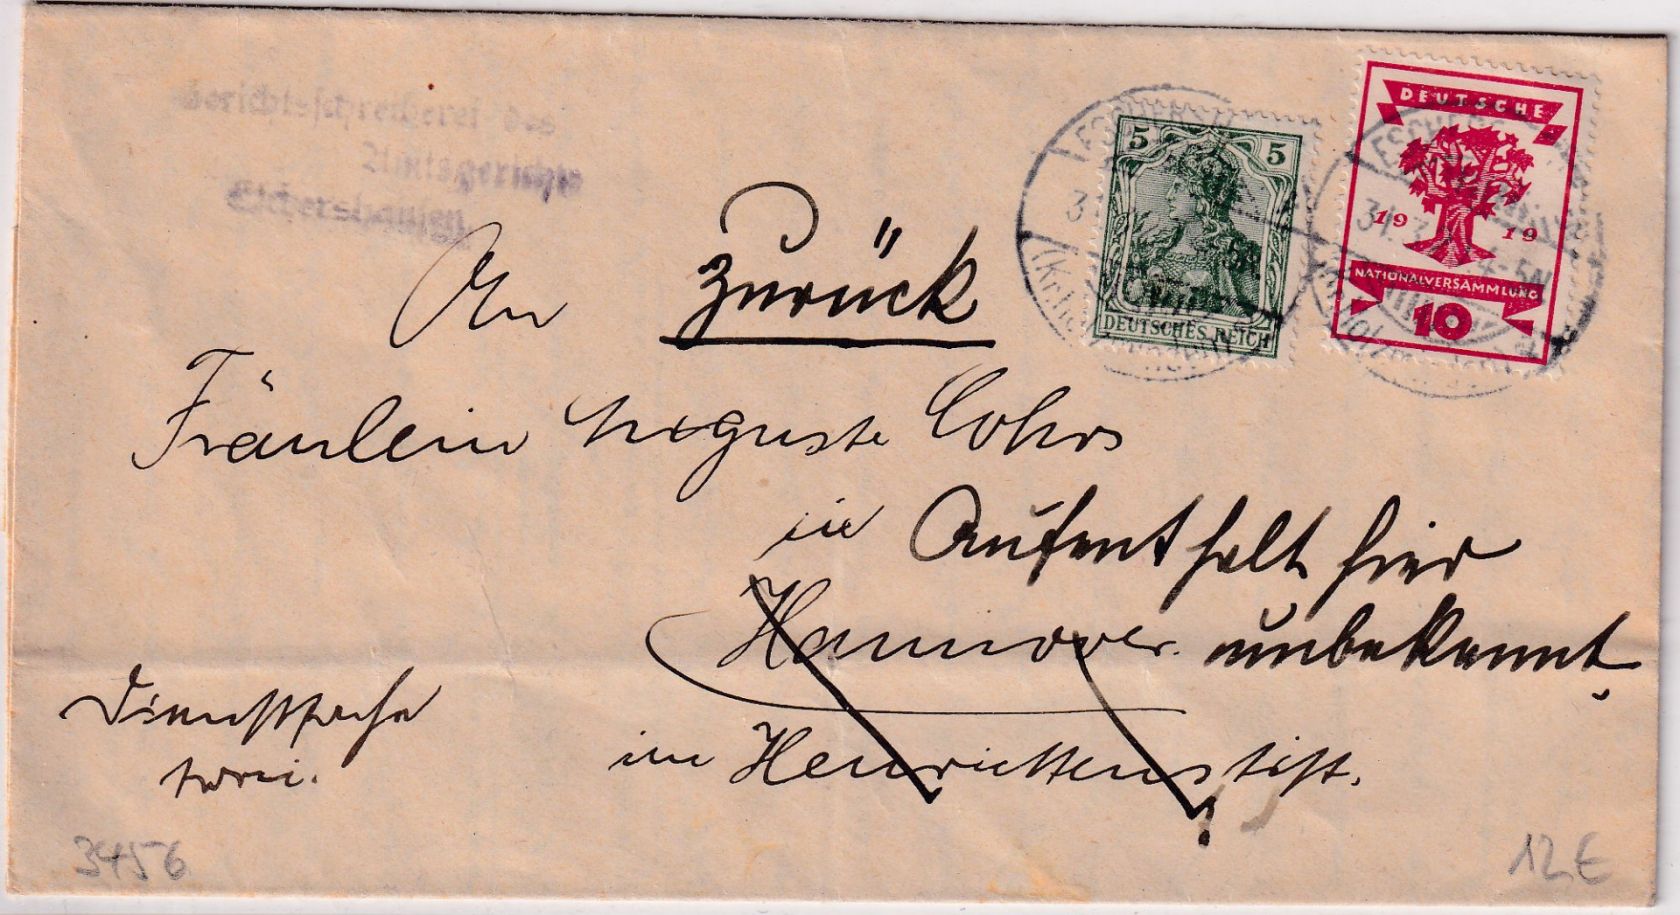 Gerichtsschreiberei des
Amtsgerichts
Eschershausen
5 5
DEUTSCHES REICH
DEUTSCHE
1919
NATIONALVERSAMMLUNG
10
An
Zurück
Fräulein Auguste Cohrs
in
Aufenthalt hier
Hannover.
unbekannt.
im Henriettenstift.
Dienstsache
frei.
3456
12 €